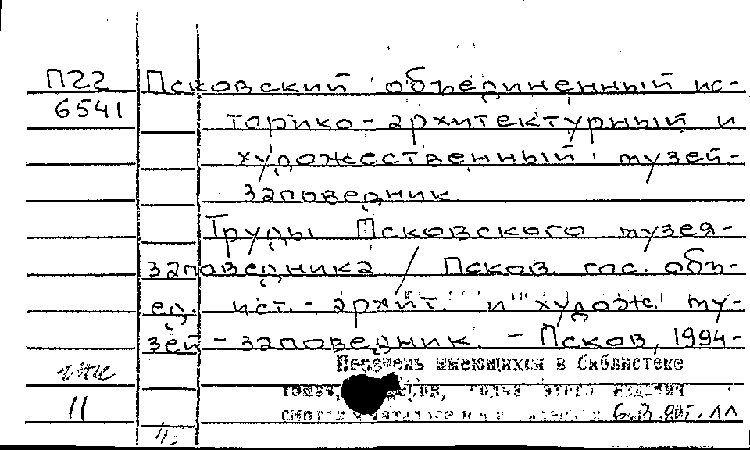 П22 Псковский объединенный ис-
6541 торико-архитектурный и
художественный музей-
заповедник
Труды Псковского музея-
заповедника / Псков. гос. объ-
ед. ист.-архит. и худож. му-
зей-заповедник. - Псков, 1994-
Перечень имеющихся в Библиотеке
этого издания
11